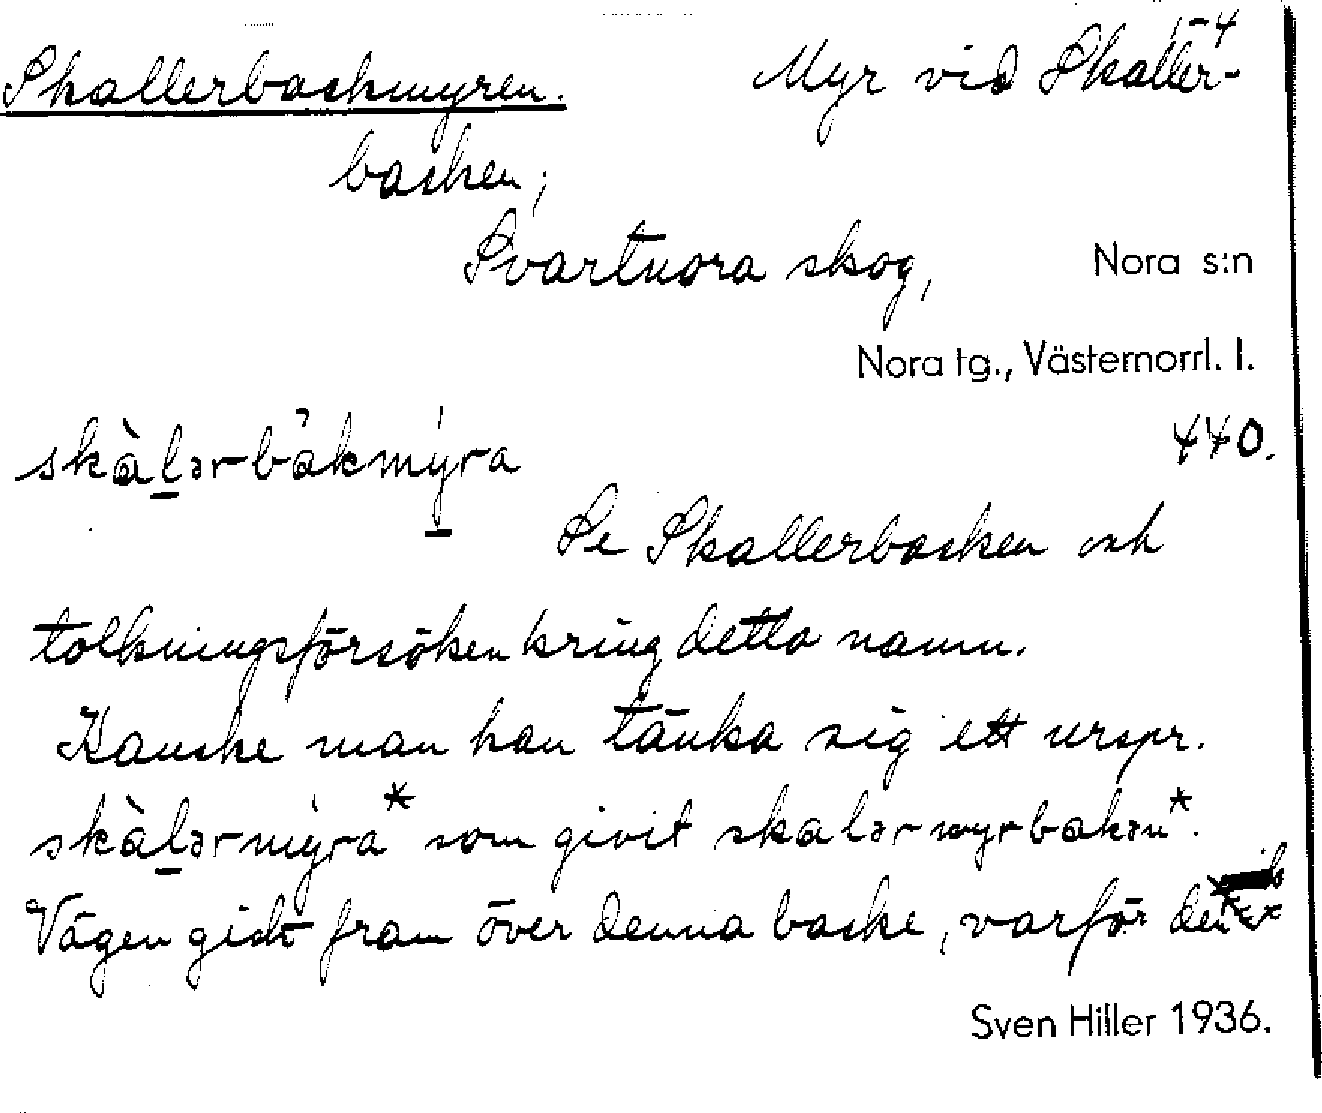 1-4
Skallerbackmyren. Myr vid Skaller-
backen;
Svartnora skog, Nora s:n
Nora tg., Västernorrl. l.
skàlərbákmýra 440.
Se Skallerbacken och
tolkningsförsöken kring detta namn.
Kanske man kan tänka sig ett urspr.
skàlərmýra* som givit skalərmyrbakən*.
Vägen gick fram över denna backe, varför den
Sven Hiller 1936.